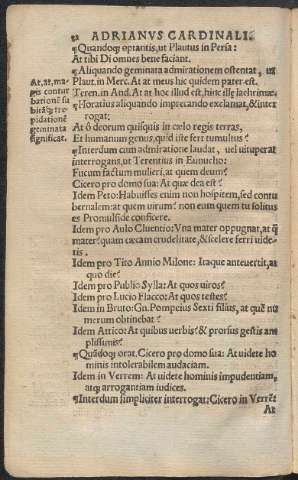 82 ADRIANVS CARDINALI.
¶Quandoq; optantis, ut Plautus in Persa:
At tibi Di omnes bene faciant.
¶Aliquando geminata admirationem ostentat, ut
Plaut. in Merc. At at meus hic quidem pater est.
Teren. in And. At at hoc illud est, hinc illę lachrimæ.
¶Horatius aliquando imprecando exclamat, & inter
rogat:
At ô deorum quisquis in cœlo regis terras,
Et humanum genus, quid iste fert tumultus?
¶Interdum cum admiratione laudat, uel uituperat
interrogans, ut Terentius in Eunucho:
Fucum factum mulieri, at quem deum?
Cicero pro domo sua: At quæ dea est?
Idem Peto: Habuisses enim non hospitem, sed contu
bernalem: at quem uirum? non eum quem tu solitus
es Promulside conficere.
Idem pro Aulo Cluentio: Vna mater oppugnat, at q̃
mater? quam cæcam crudelitate, & scelere ferri uide
tis.
Idem pro Tito Annio Milone: Itaque anteuertit, at
quo die?
Idem pro Publio Sylla: At quos uiros?
Idem pro Lucio Flacco: At quos testes?
Idem in Bruto: Gn. Pompeius Sexti filius, at quẽ nu
merum obtinebat?
Idem Attico: At quibus uerbis? & prorsus gestis am
plissimis?
¶Quãdoq; orat. Cicero pro domo sua: At uidete ho
minis intolerabilem audaciam.
Idem in Verrem: At uidete hominis impudentiam,
atq; arrogantiam iudices.
¶Interdum simpliciter interrogat: Cicero in Verrẽ:
At
At, at, ma
gis contur
bationẽ su
bitãq; tre
pidationẽ
geminata
significat.